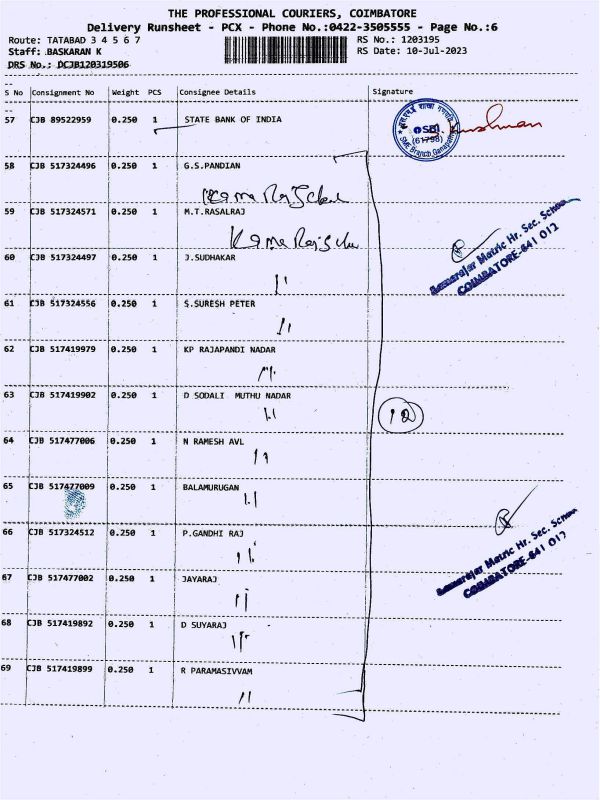 THE PROFESSIONAL COURIERS, COIMBATORE
Delivery Runsheet - PCX - Phone No.:0422-3505555 - Page No.:6
Route: TATABAD 3 4 5 6 7 RS No.: 1203195
Staff: BASKARAN K RS Date: 10-Jul-2023
DRS No.: DCJB120319506
S No Consignment No Weight PCS Consignee Details Signature
57 CJB 89522959 0.250 1 STATE BANK OF INDIA
SBI
(61798)
SME Branch
58 CJB 517324496 0.250 1 G.S.PANDIAN
59 CJB 517324571 0.250 1 M.T.RASALRAJ
60 CJB 517324497 0.250 1 J.SUDHAKAR
Kamarajar Matric Hr. Sec. School
COIMBATORE-641 012
61 CJB 517324556 0.250 1 S.SURESH PETER
62 CJB 517419979 0.250 1 KP RAJAPANDI NADAR
63 CJB 517419902 0.250 1 D SODALI MUTHU NADAR
12
64 CJB 517477006 0.250 1 N RAMESH AVL
65 CJB 517477009 0.250 1 BALAMURUGAN
66 CJB 517324512 0.250 1 P.GANDHI RAJ
Kamarajar Matric Hr. Sec. School
COIMBATORE-641 012
67 CJB 517477002 0.250 1 JAYARAJ
68 CJB 517419892 0.250 1 D SUYARAJ
69 CJB 517419899 0.250 1 R PARAMASIVVAM